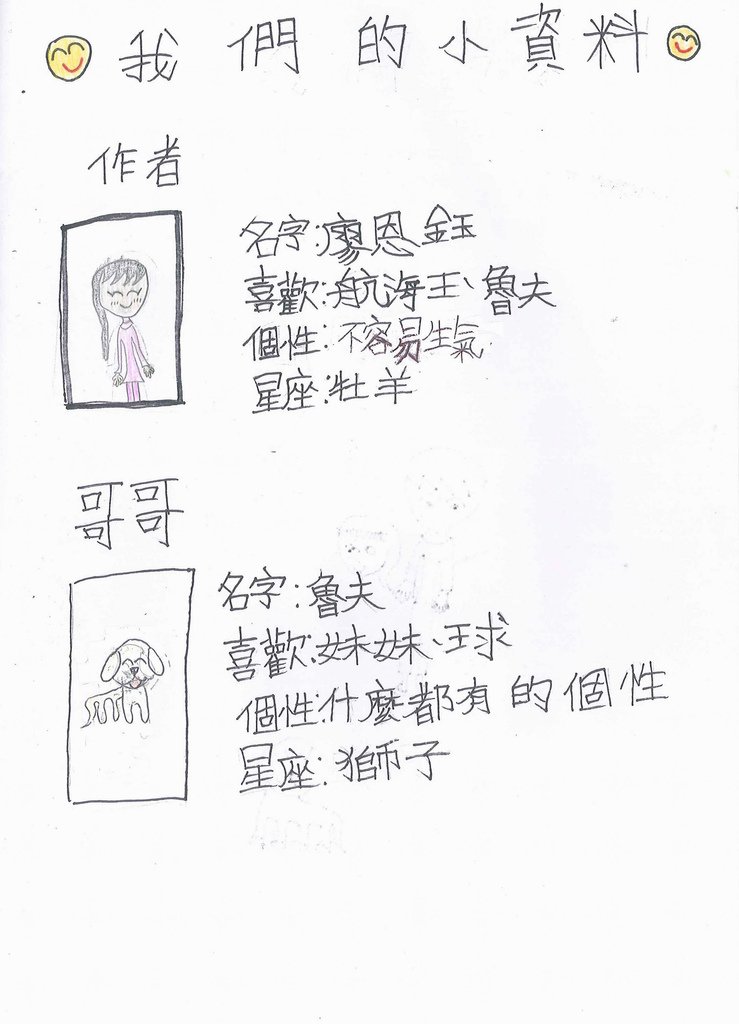 我們的小資料
作者
名字:廖恩鈺
喜歡:航海王、魯夫
個性:不容易生氣
星座:牡羊
哥哥
名字:魯夫
喜歡:妹妹、王求
個性:什麼都有的個性
星座:獅子